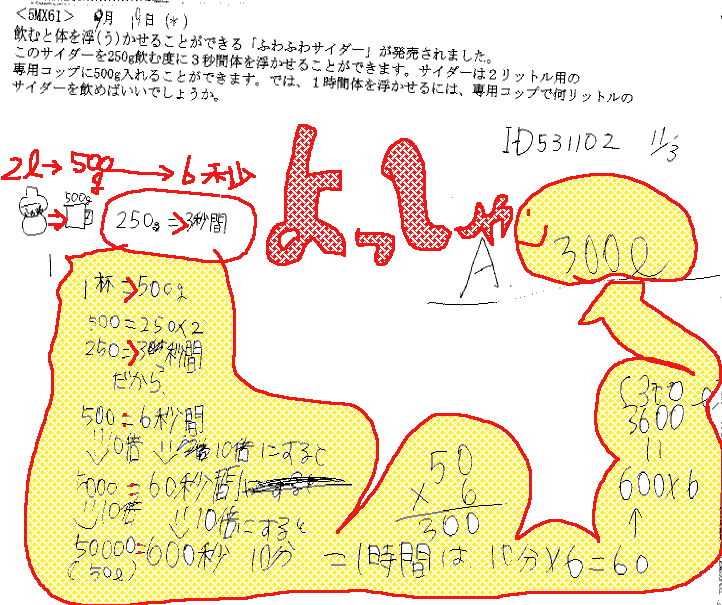 <5MX61> 9月 19日 (*)
飲むと体を浮(う)かせることができる「ふわふわサイダー」が発売されました。
このサイダーを250g飲む度に3秒間体を浮かせることができます。サイダーは2リットル用の
専用コップに500g入れることができます。では、1時間体を浮かせるには、専用コップで何リットルの
サイダーを飲めばいいでしょうか。
ID531102 11/3
2l→500g→6秒
500g
250g=3秒間
よっしゃ
A 300l
1
1杯=500g
500=250×2
250=3秒間
だから、
500=6秒間
10倍 10倍にすると
5000=60秒間
10倍 10倍にすると
50000=600秒 10分 =1時間は、10分×6=60
(50l)
50
×6
300
3600
=
600×6
↑